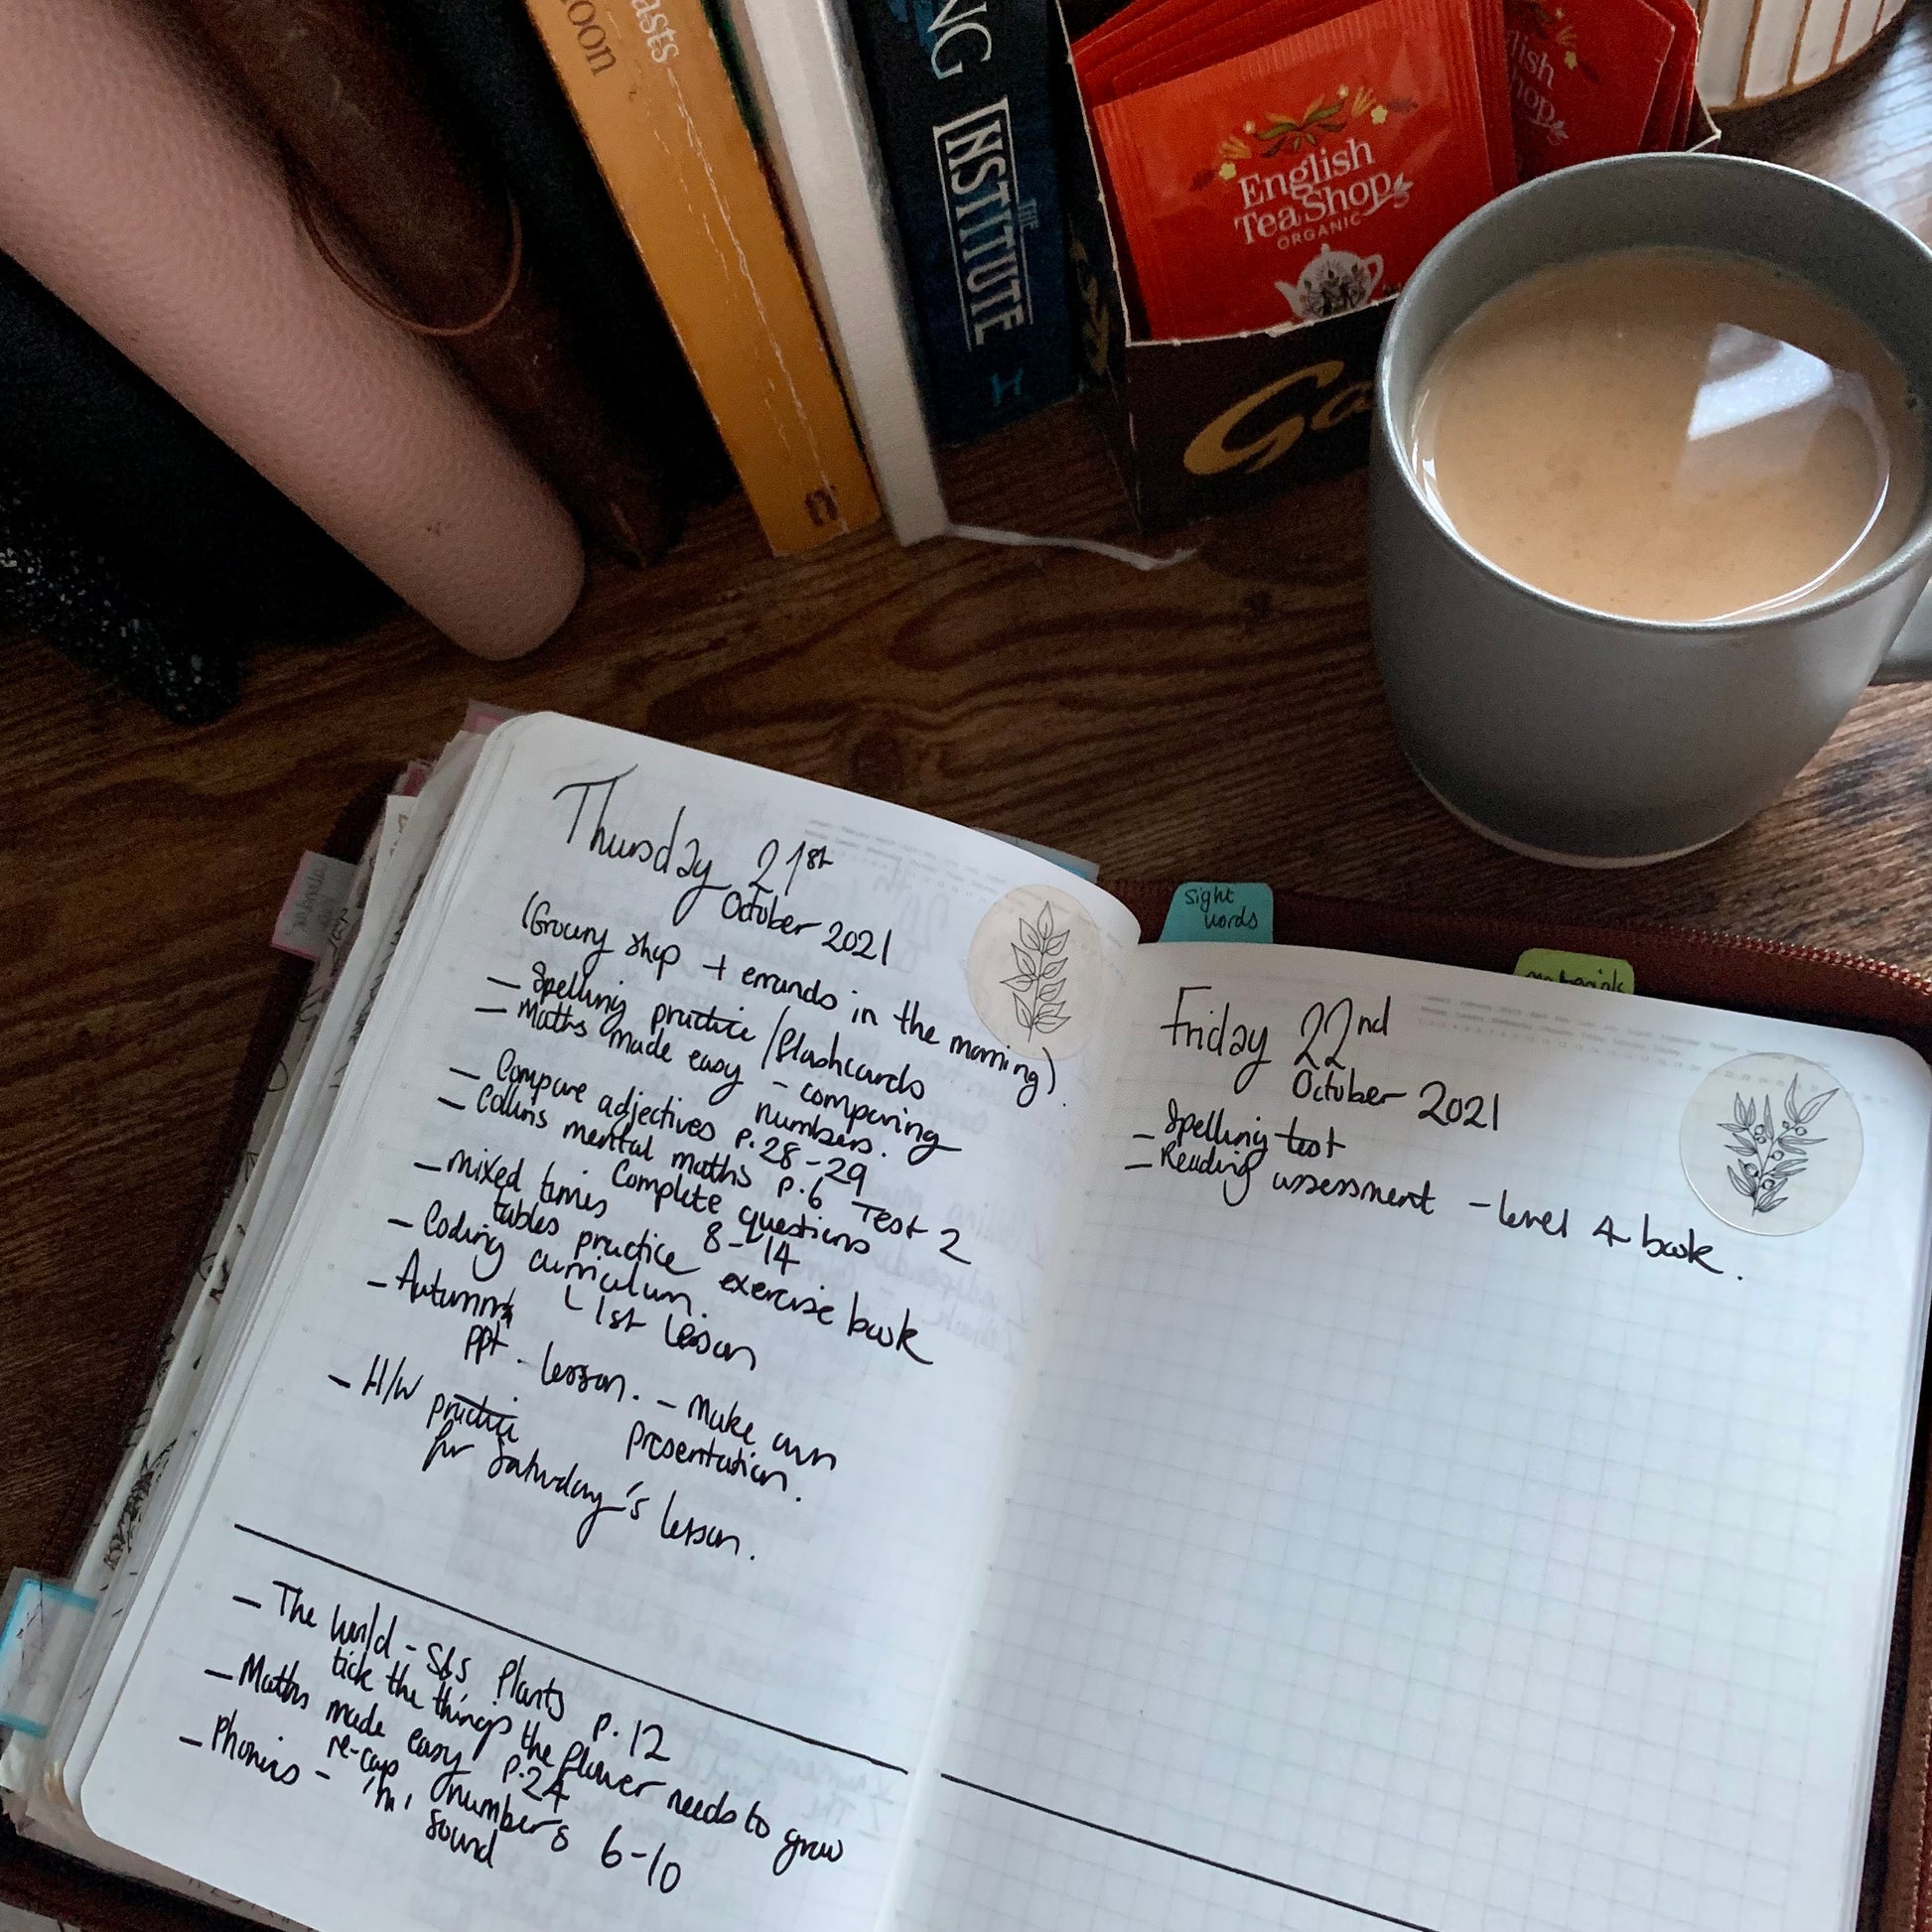 asts
oon
NG
THE
INSTITUTE
English
Tea Shop
ORGANIC
lish
hop
Ga
sight
words
materials
Thursday 21st
October 2021
(Grocery shop + errands in the morning)
- Spelling practice / flashcards
- Maths made easy - comparing
numbers.
- Compare adjectives p.28-29
- Collins mental maths p.6 Test 2
Complete questions
8-14
- mixed times
tables practice exercise book
- Coding curriculum.
1st lesson
- Autumn
ppt. lesson. - Make own
presentation.
- H/W practice
for Saturday's lesson.
- The World - Plants p.12
tick the things the flower needs to grow
- Maths made easy p.24
re-cap numbers 6-10
- Phonics - 'h'
sound
Friday 22nd
October 2021
- Spelling test
- Reading assessment - level 4 book.